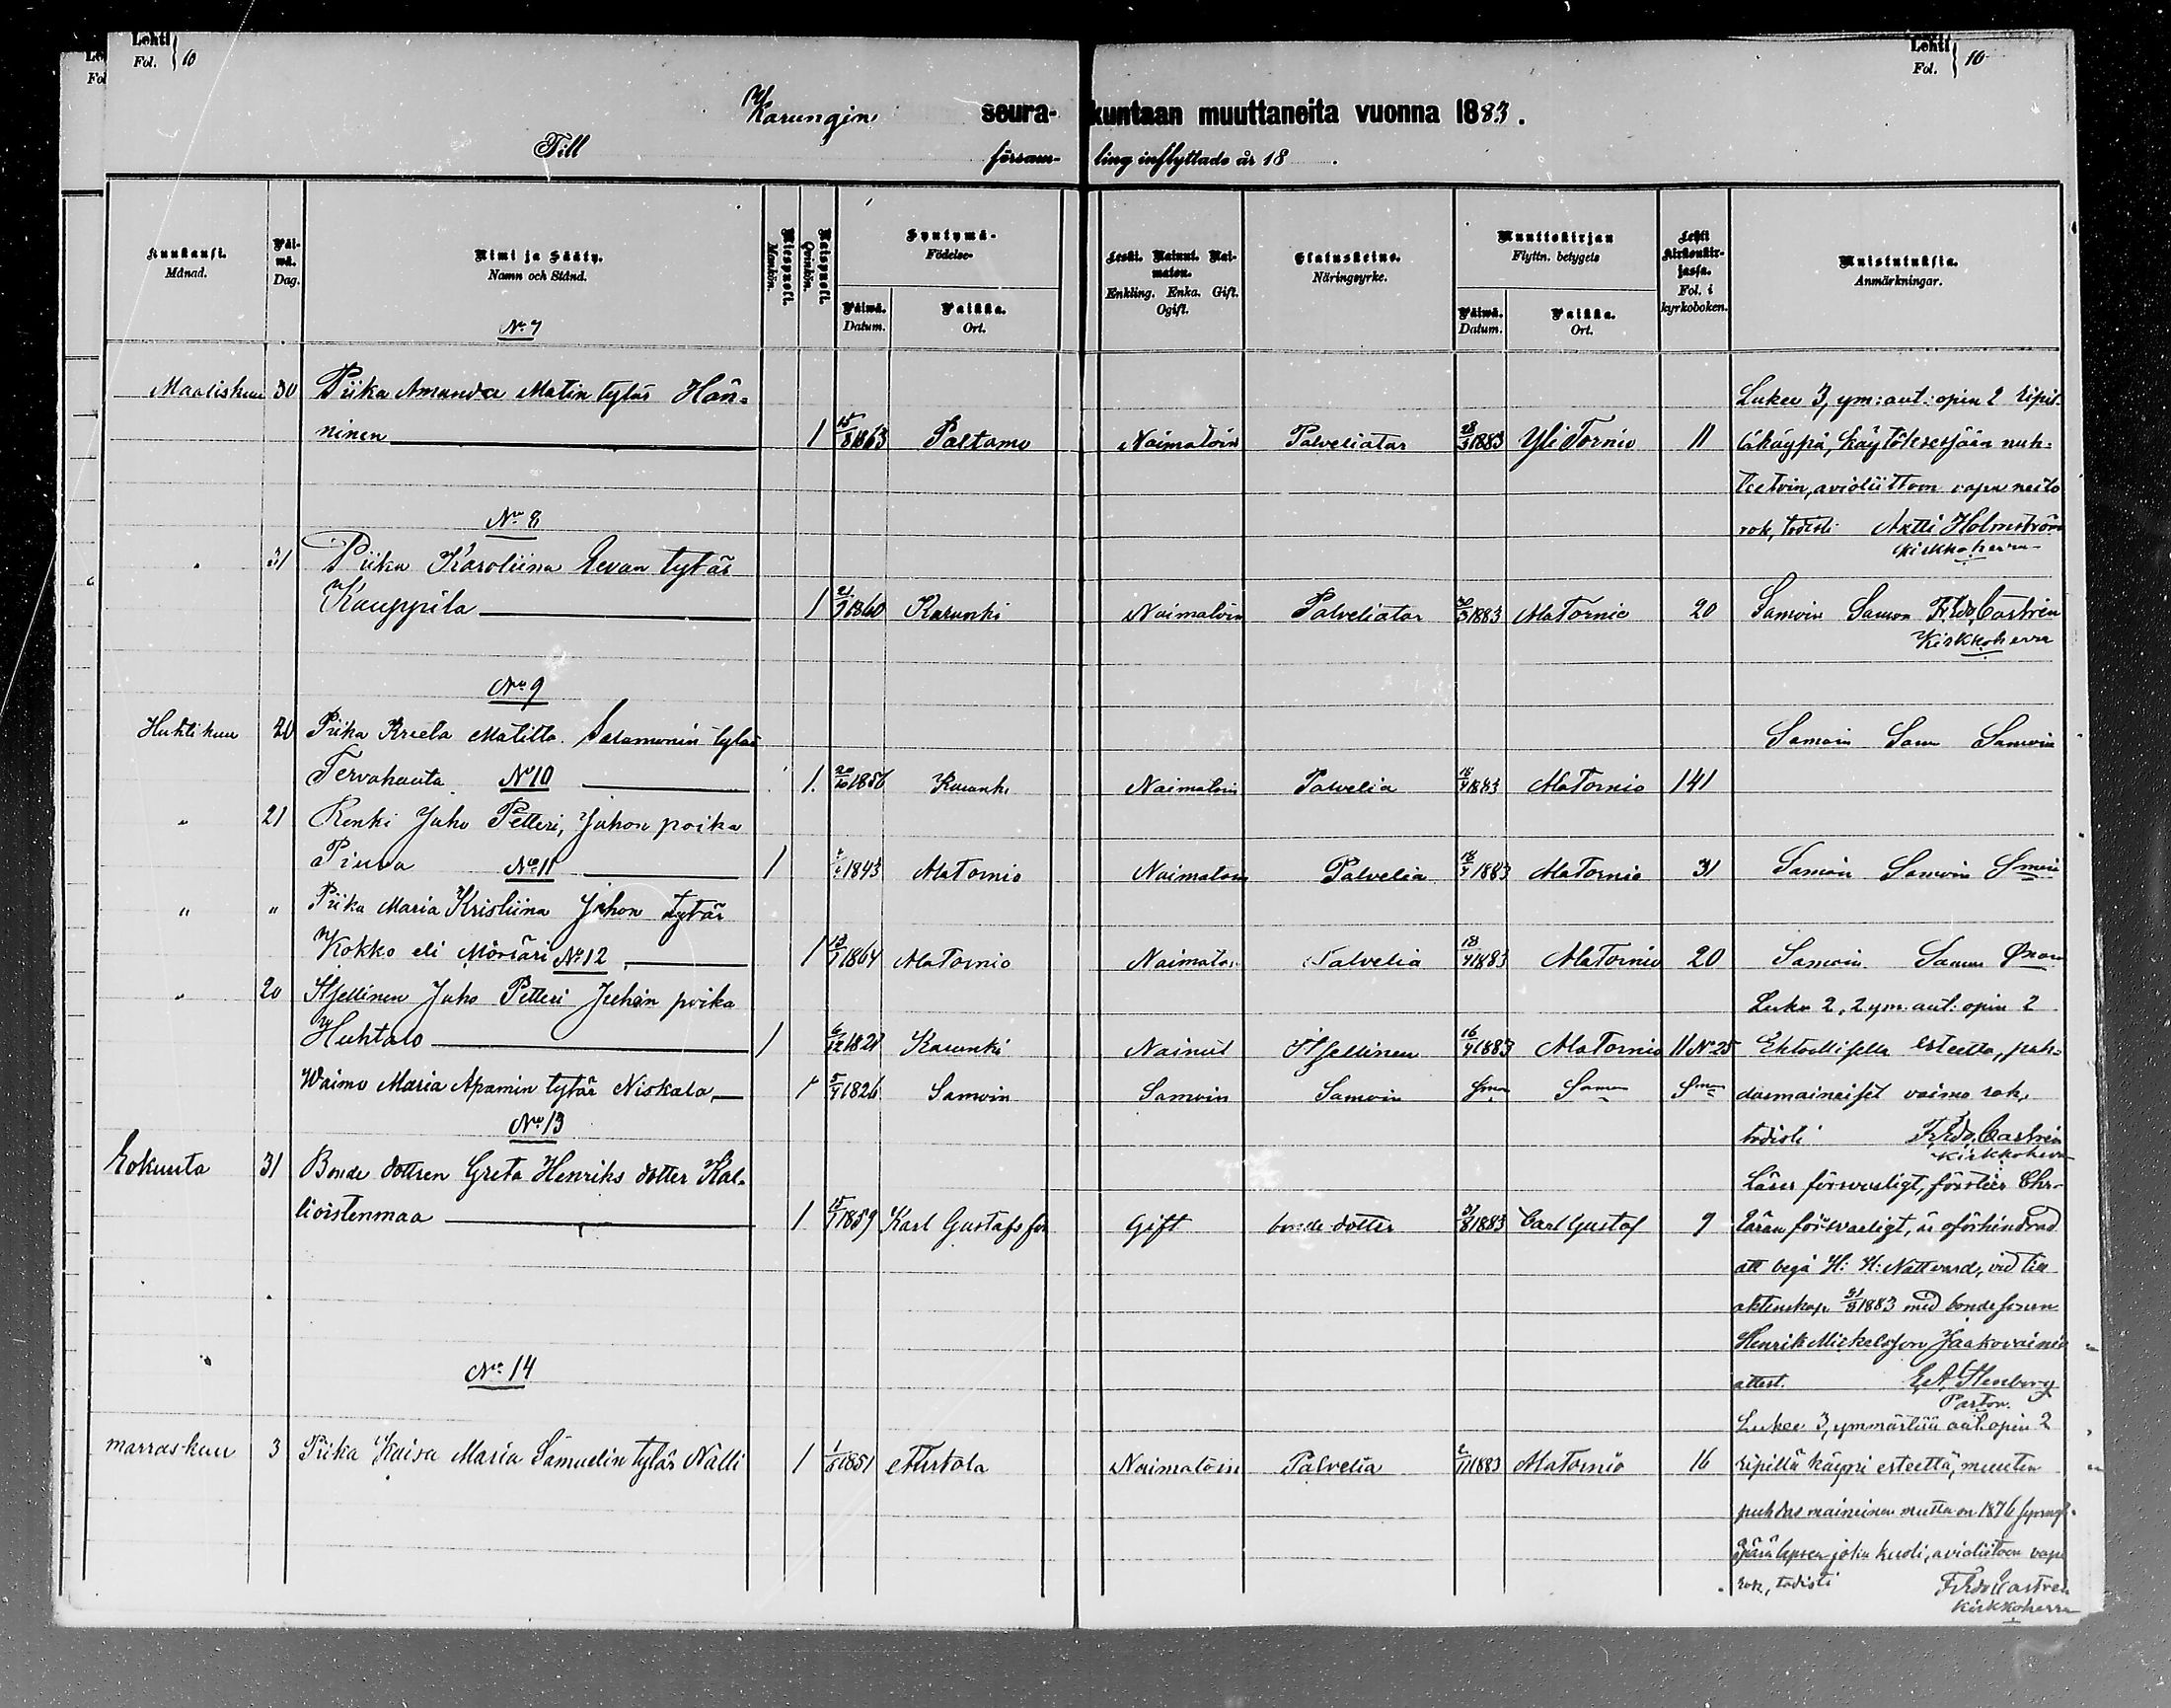 Lehti Fol. 10
Lehti Fol. 10
Karungin seura-kuntaan muuttaneita vuonna 1883.
Till församling inflyttade år 18 .
Kuukausi. Månad.
Päi-wä. Dag.
Nimi ja Sääty. Namn och Stånd.
Miespuoli. Mankön.
Naispuoli. Qvinkön.
Syntymä- Födelse-
Päiwä. Datum.
Paikka. Ort.
Leski. Nainut. Nai-maton. Enkling. Enka. Gift. Ogift.
Elatuskeino. Näringsyrke.
Muuttokirjan Flyttn. betygets
Päiwä. Datum.
Paikka. Ort.
Lehti kirkonkir-jassa. Fol. i kyrkoboken.
Muistutuksia. Anmärkningar.
No 7
Maaliskuu 30 Piika Amanda Matin tytär Hän-
Lukee 3, ym: aut: opin 2 ripil-
ninen 1 15/8 1863 Paltamo Naimatoin Palveliatar 28/3 1883 Yli Tornio 11 lä käypä, käytöksessään nuh-
teetoin, avioliittoon vapa neito
No 8
rok, todisti Antti Holmström
kirkkoherra
" 31 Piika Karoliina Eevan tytär
Kauppila 1 21/9 1860 Karunki Naimatoin Palveliatar 30/3 1883 Ala Tornio 20 Samoin Samoin F. Edv. Castrén
Kirkkoherra
No 9
Huhtikuu 20 Piika Kreeta Matilta Salamonin tytär
Samoin Sam Samoin
Tervahauta No 10 1 20/10 1856 Karunki Naimatoin Palvelia 16/4 1883 Ala Tornio 141
" 21 Renki Juho Petteri, Juhon poika
Piuva No 11 1 1843 Ala Tornio Naimatoin Palvelia 18/4 1883 Ala Tornio 31 Samoin Samoin Smoin
" " Piika Maria Kristiina Johon tytär
Kokko eli Möräri No 12 1 13/1 1864 Ala Tornio Naimatoin Palvelia 18/4 1883 Ala Tornio 20 Samoin Samoin
" 20 Itsellinen Juho Petteri Juhan poika
Luke 2, 2 ym: aut: opin 2
Huhtalo 1 6/12 1821 Karunki Nainut Itsellinen 16/4 1883 Ala Tornio 11 No 25 Ehtoollisella esteettä, puh-
Waimo Maria Apamin tytär Niskala 1 5/4 1826 Samoin Samoin Samoin Smoin Samoin Smoin dasmaineiset vaimo rok,
No 13
todisti F. Edv. Castrén
kirkkoherra
Elokuuta 31 Bonde dottren Greta Henriks dotter Kal-
Läser försvarligt, förstår Chr-
lioistenmaa 1 15/1 1859 Karl Gustafs förs Gift bonde dotter 31/8 1883 Carl Gustaf 9 läran försvarligt, är oförhindrad
att begå H: H: Nattvard, vid till
äktenskap 31/8 1883 med bondesonen
Henrik Mickelsson Jaakovainio
No 14
attest. E. A. Stenberg
Pastor.
Lukee 3, ymmärtää aut. opin 2
marraskuu 3 Piika Kaisa Maria Samuelin tytär Nälli 1 1/8 1851 Turtola Naimatoin Palvelia 2/11 1883 Ala Tornio 16 ripillä käypi esteettä, muuten
puhdas maineinen mutta on 1876
äpärä lapsen joka kuoli, aviolistoon vapa
rok, todisti F. Edv. Castrén
kirkkoherra